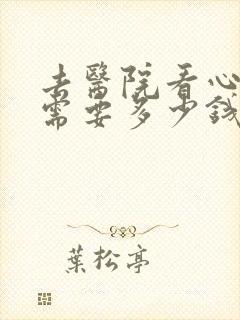 去醫院看心
需要多少錢
葉松亭